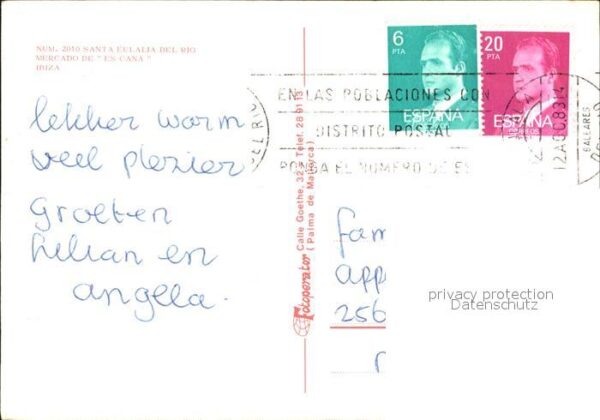 NUM. 2010 SANTA EULALIA DEL RIO
MERCADO DE " ES CANA "
IBIZA
lekker warm
veel plezier
Groeten
Lilian en
angela.
Fotoperator Calle Goethe, 32 - Telef. 28 91 13
( Palma de Mallorca )
6
PTA
ESPAÑA
20
PTA
ESPAÑA
CORREOS
EN LAS POBLACIONES CON
DISTRITO POSTAL
PONGA EL NUMERO DE ES
12 AGO. 83
BALEARES
fam
app
256
privacy protection
Datenschutz